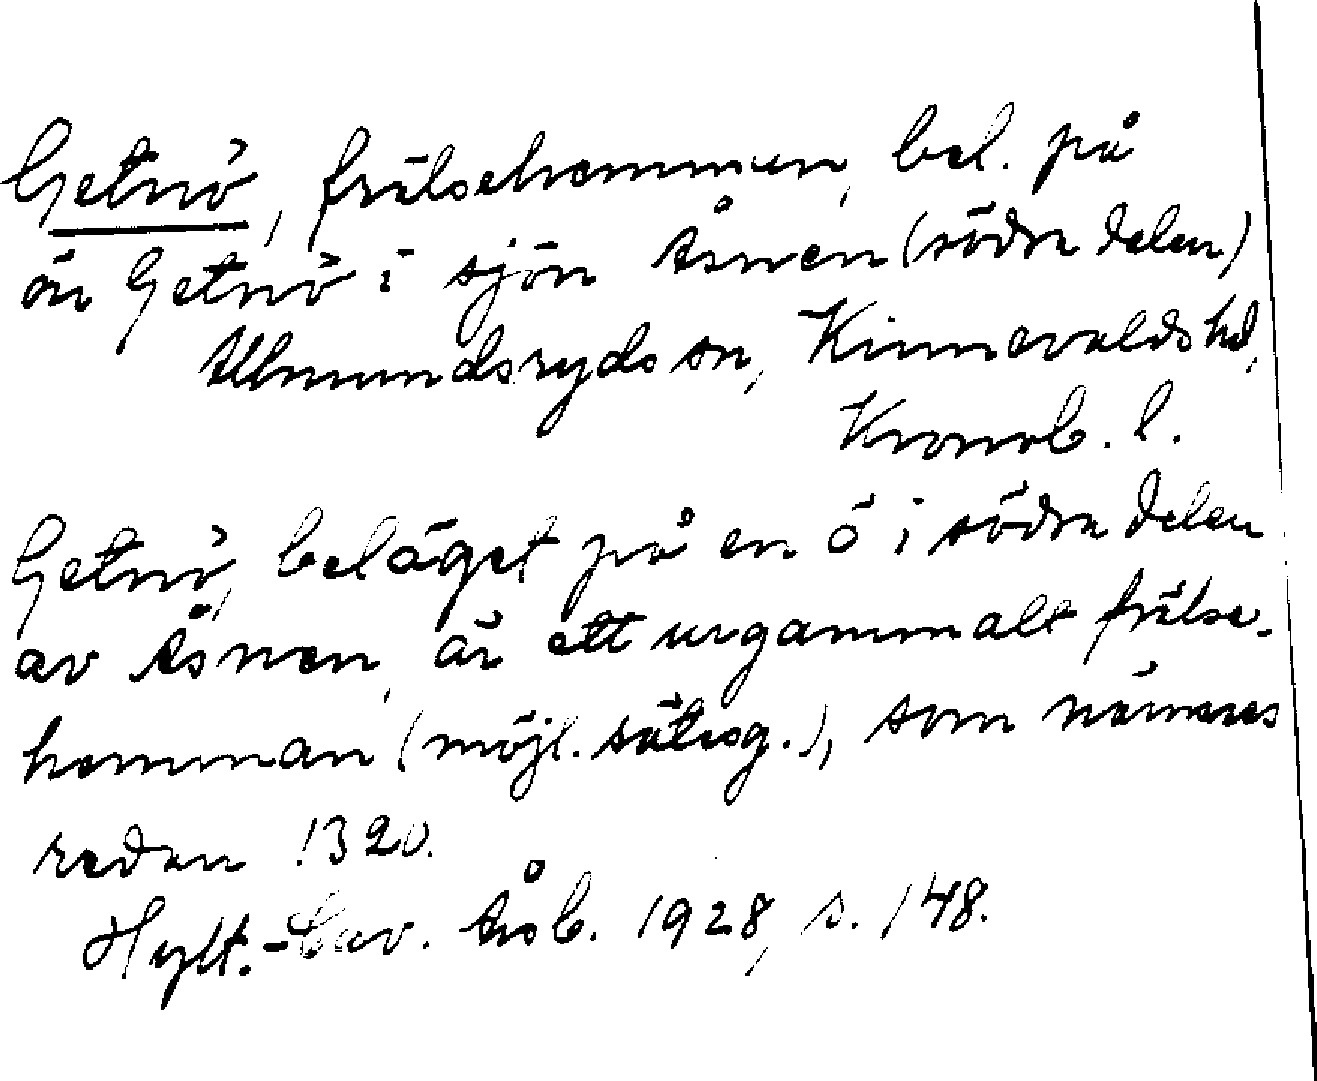 Getnö, frälsehemman, bel. på
ön Getnö i sjön Åsnen (södra delen)
Almundsryds sn, Kinnevalds hd,
Kronob. l.
Getnö, beläget på en ö i södra delen
av Åsnen, är ett urgammalt frälse-
hemman (möjl. sätesg.), som nämnes
redan 1320.
Hylt.-Cav. Årsb. 1928, s. 148.